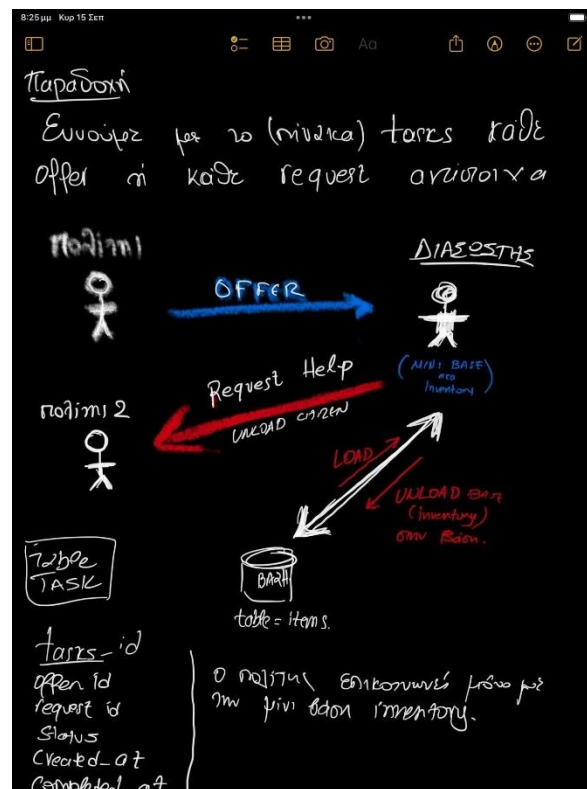 8:25 μμ Κυρ 15 Σεπ
Aa
Παραδοχή
Εννοούμε με το (πίνακα) tasks κάθε
offer ή κάθε request αντίστοιχα
πολίτη 1
ΔΙΑΣΩΣΤΗΣ
OFFER
(MINI BASE
απο
Inventory)
Request Help
UNLOAD CITIZEN
πολίτη 2
LOAD
UNLOAD BASE
(inventory)
στην βάση.
Table
TASK
ΒΑΣΗ
table = items.
tasks_id
offer id
request id
Status
Created_at
Completed_at
Ο πολίτης επικοινωνεί μόνο με
την μίνι βάση inventory.